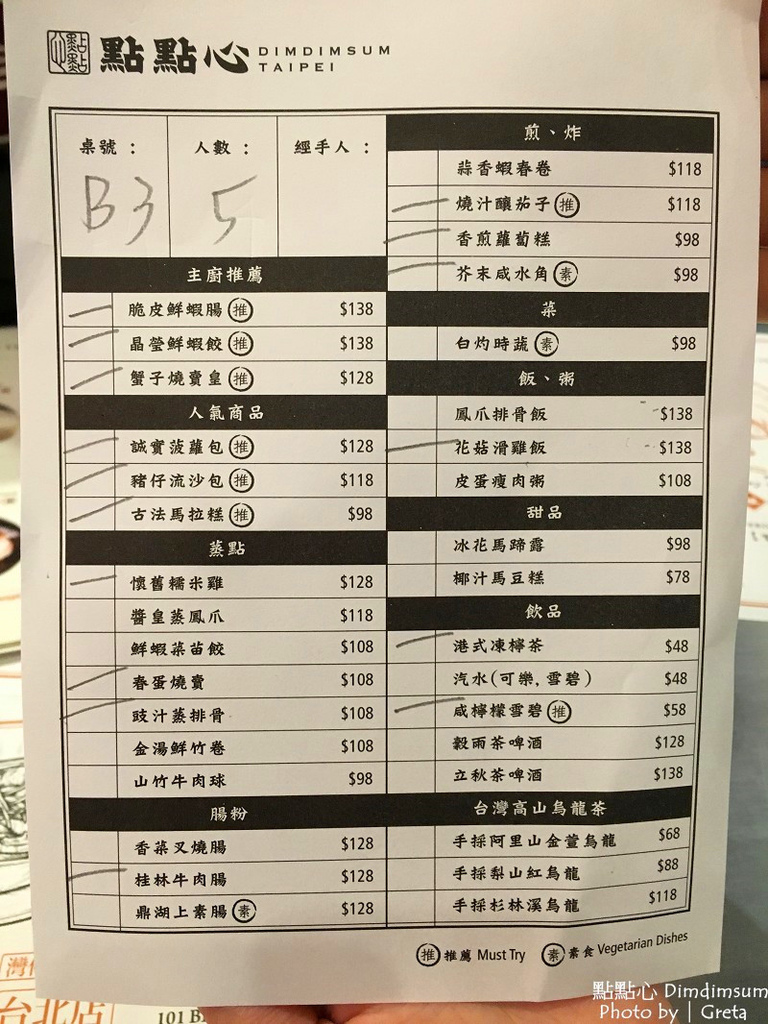 點點 心 點點心 DIMDIMSUM
TAIPEI
桌號： 人數： 經手人：
B3 5
主廚推薦
脆皮鮮蝦腸 推 $138
晶瑩鮮蝦餃 推 $138
蟹子燒賣皇 推 $128
人氣商品
誠實菠蘿包 推 $128
豬仔流沙包 推 $118
古法馬拉糕 推 $98
蒸點
懷舊糯米雞 $128
醬皇蒸鳳爪 $118
鮮蝦菜苗餃 $108
春蛋燒賣 $108
豉汁蒸排骨 $108
金湯鮮竹卷 $108
山竹牛肉球 $98
腸粉
香菜叉燒腸 $128
桂林牛肉腸 $128
鼎湖上素腸 素 $128
煎、炸
蒜香蝦春卷 $118
燒汁釀茄子 推 $118
香煎蘿蔔糕 $98
芥末咸水角 素 $98
菜
白灼時蔬 素 $98
飯、粥
鳳爪排骨飯 $138
花菇滑雞飯 $138
皮蛋瘦肉粥 $108
甜品
冰花馬蹄露 $98
椰汁馬豆糕 $78
飲品
港式凍檸茶 $48
汽水(可樂,雪碧) $48
咸檸檬雪碧 推 $58
穀雨茶啤酒 $128
立秋茶啤酒 $138
台灣高山烏龍茶
手採阿里山金萱烏龍 $68
手採梨山紅烏龍 $88
手採杉林溪烏龍 $118
推 推薦 Must Try 素 素食 Vegetarian Dishes
灣
台北店
101 B
點點心 Dimdimsum
Photo by | Greta